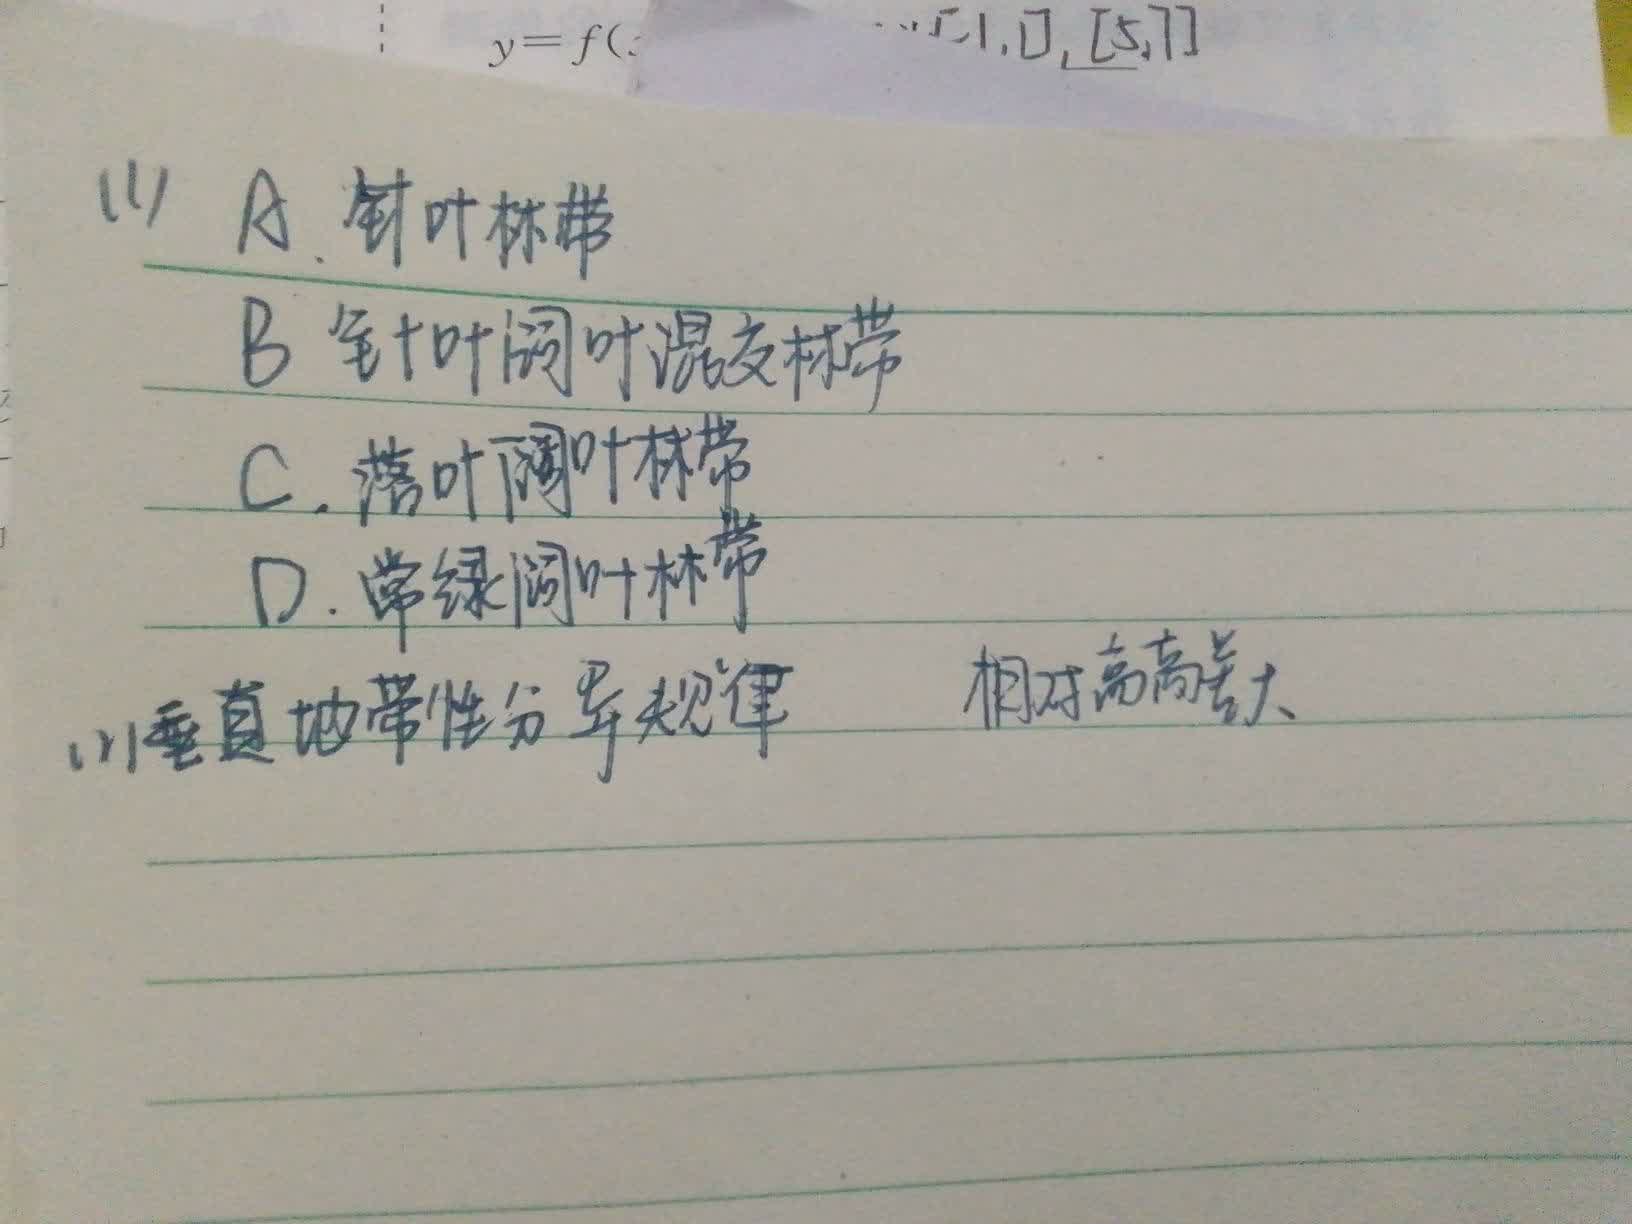 y=f(
[-1,1],[5,7]
(1) A.针叶林带
B 针叶阔叶混交林带
C.落叶阔叶林带
D.常绿阔叶林带
(2)垂直地带性分异规律 相对高高差大